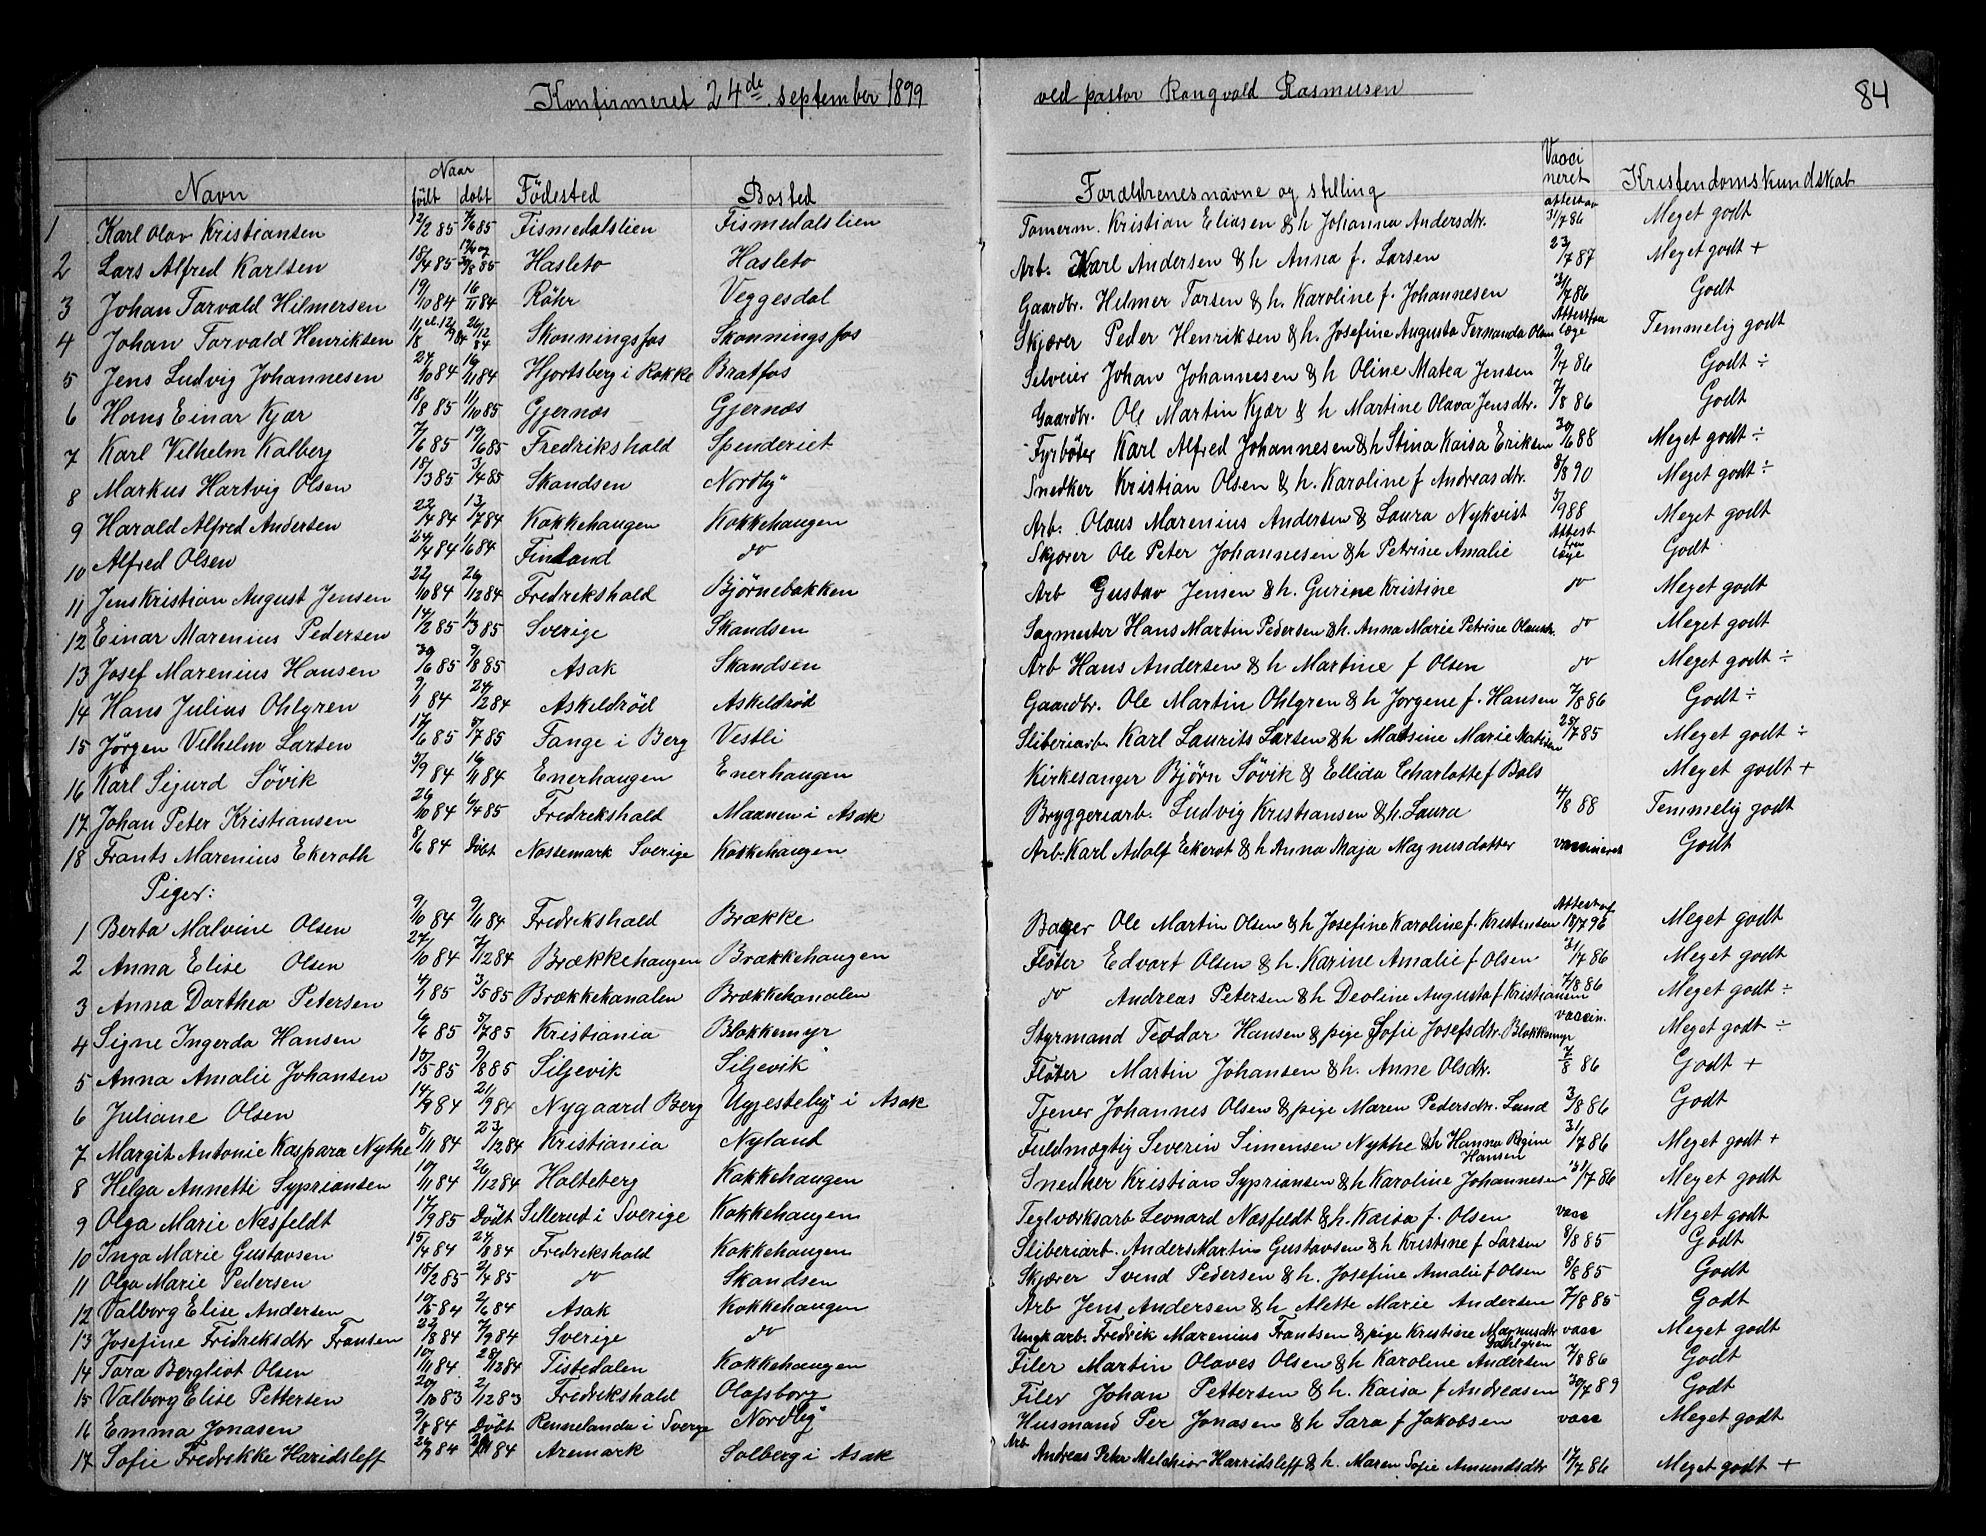 Konfirmeret 24de september 1899 ved pastor Rangvald Rasmusen 84
Navn Naar født døbt Födested Bosted Forældrenes navne og stilling Vacci neret Kristendomskundskab
1 Karl Olav Kristiansen 12/2 85 7/6 85 Fismedalslien Fismedalslien Tømerm. Kristian Eliasen & h Johanna Andersdtr. attest av 31/7 86 Meget godt
2 Lars Alfred Karlsen 18/4 85 85 Hasleto Hasleto Arb. Karl Andersen & h Anna f. Larsen 23/7 87 Meget godt +
3 Johan Torvald Hilmersen 19/10 84 16/11 84 Röhr Veggesdal Gaardbr. Hilmer Torsen & h. Karoline f. Johannesen 31/7 86 Godt
4 Johan Torvald Henriksen 26/12 84 Skonningsfos Skonningsfos Skjærer Peder Henriksen & h. Josefine Augusta Fernanda Olsen Attest fra læge Temmelig godt
5 Jens Ludvig Johannesen 24/10 84 16/11 84 Hjortsberg i Rokke Bratfos Selveier Johan Johannesen & h Oline Matea Jensen 9/7 86 Godt ÷
6 Hans Einar Kjær 18/8 85 11/10 85 Gjernæs Gjernæs Gaardbr. Ole Martin Kjær & h Martine Olava Jensdtr. 7/8 86 Godt
7 Karl Vilhelm Kalberg 7/6 85 19/6 85 Fredrikshald Spenderiet Fyrböter Karl Alfred Johannesen & h Stina Kaisa Eriksen 20/6 88 Meget godt ÷
8 Markus Hartvig Olsen 18/3 85 3/4 85 Skandsen Nordby Snedker Kristian Olsen & h. Karoline f Andreasdtr. 8/8 90 Meget godt ÷
9 Harald Alfred Andersen 22/4 84 13/7 84 Kokkehaugen Kokkehaugen Arb. Olaus Marenius Andersen & Laura Nykvist 5/9 88 Meget godt
10 Alfred Olsen 24/4 84 1/6 84 Finland do Skjærer Ole Peter Johannesen & h Petrine Amalie Attest fra læge Godt
11 Jens Kristian August Jensen 22/10 84 26/12 84 Fredrikshald Bjørnebakken Arb Gustav Jensen & h. Gurine Kristine do Meget godt
12 Einar Marenius Pedersen 14/2 85 1/3 85 Sverige Skandsen Sagmester Hans Martin Pedersen & h. Anna Marie Petrine Olausdtr. do Meget godt
13 Josef Marenius Hansen 30/6 85 9/8 85 Asak Skandsen Arb Hans Andersen & h Martine f Olsen do Meget godt ÷
14 Hans Julius Ohlgren 9/11 84 24/12 84 Askeldrød Askeldrød Gaardbr. Ole Martin Ohlgren & h Jørgene f. Hansen 7/8 86 Godt ÷
15 Jörgen Vilhelm Larsen 17/6 85 5/7 85 Tange i Berg Vestli Sliberiarb. Karl Laurits Larsen & h Matsine Marie Matisen 25/7 85 Meget godt ÷
16 Karl Sigurd Sövik 3/9 84 16/11 84 Enerhaugen Enerhaugen Kirkesanger Bjørn Sövik & Ellida Charlotte f Bols Meget godt +
17 Johan Peter Kristiansen 26/10 84 6/4 85 Fredrikshald Maanen i Asak Bryggeriarb. Ludvig Kristiansen & h. Laura 4/8 88 Temmelig godt
18 Frants Marenius Ekeroth 8/6 84 Döbt Nossemark Sverige Kokkehaugen Arb. Karl Adolf Ekerot & h Anna Maja Magnusdotter vaccineret Godt
Piger:
1 Berta Malvine Olsen 9/10 84 9/11 84 Fredrikshald Brække Bager Ole Martin Olsen & h Josefine Karoline f. Kristensen Attest af 18/7 96 Meget godt
2 Anna Elise Olsen 27/10 84 7/12 84 Brækkehaugen Brækkehaugen Fløter Edvart Olsen & h. Karine Amalie f Olsen 31/7 86 Meget godt
3 Anna Dorthea Petersen 4/1 85 3/5 85 Brækkekanalen Brækkekanalen do Andreas Petersen & h Deoline Augusta f Kristiansen 7/8 86 Meget godt ÷
4 Signe Ingerda Hansen 6/6 85 5/7 85 Kristiania Blokkemyr Styrmand Teddar Hansen & pige Sofie Josefsdtr. Blokkemyr vaccin. Meget godt ÷
5 Anna Amalie Johansen 15/5 85 9/8 85 Siljevik Siljevik Fløter Martin Johansen & h. Anne Olsdtr. 7/8 86 Godt +
6 Juliane Olsen 14/7 84 21/9 84 Nygaard Berg Uggesteby i Asak Tjener Johannes Olsen & pige Maren Pedersdtr. Lund 3/8 86 Godt
7 Margit Antonie Kaspara Nythe 5/11 84 23/12 84 Kristiania Nyland Fuldmægtig Severin Simensen Nykke & h Hanna Regine Hansen 31/7 86 Meget godt +
8 Helga Annette Sypriansen 10/11 84 26/12 84 Holteberg Kokkehaugen Snedker Kristian Sypriansen & h Karoline Johannesen 31/7 86 Meget godt
9 Olga Marie Næsfeldt 17/9 85 Dödt Sillerud i Sverige Kokkehaugen Teglværksarb Leonard Næsfeldt & h. Kaisa f. Olsen vacc Meget godt
10 Inga Marie Gustavsen 15/4 84 24/8 84 Fredrikshald Kokkehaugen Sliberiarb. Anders Martin Gustavsen & h Kristine f Larsen 8/8 85 Godt
11 Olga Marie Pedersen 15/2 85 2/4 85 do Skandsen Skjærer Svend Pedersen & h. Josefine Amalie f Olsen 8/8 85 Godt
12 Valborg Elise Andersen 10/5 84 2/6 84 Asak Kokkehaugen Arb Jens Andersen & h Mette Marie Andersen 7/8 85 Godt
13 Josefine Fridriksdtr Fransen 22/8 84 7/9 84 Sverige do Ungkarb. Fredrik Marenius Frantsen & pige Kristine Magnusdtr Dahlgren vacc Meget godt
14 Tora Bergliot Olsen 10/11 84 28/12 84 Tistedalen Kokkehaugen Filer Martin Olaves Olsen & h Karoline Andersen 7/8 86 Godt
15 Valborg Elise Pettersen 20/10 83 2/12 83 Fredrikshald Olafsborg Filer Johan Pettersen & h. Kaisa f Andreasen 30/7 89 Godt
16 Emma Jonasen 9/8 84 Döbt Rennelanda i Sverge Nordby Husmand Per Jonasen & h Sara f Jakobsen vacc Meget godt
17 Sofie Fredrikke Haridsleff 26/7 84 84 Aremark Solberg i Asak Arb Andreas Peter Melchior Harridsleff & h. Maren Sofie Amundsdtr 17/7 86 Meget godt +